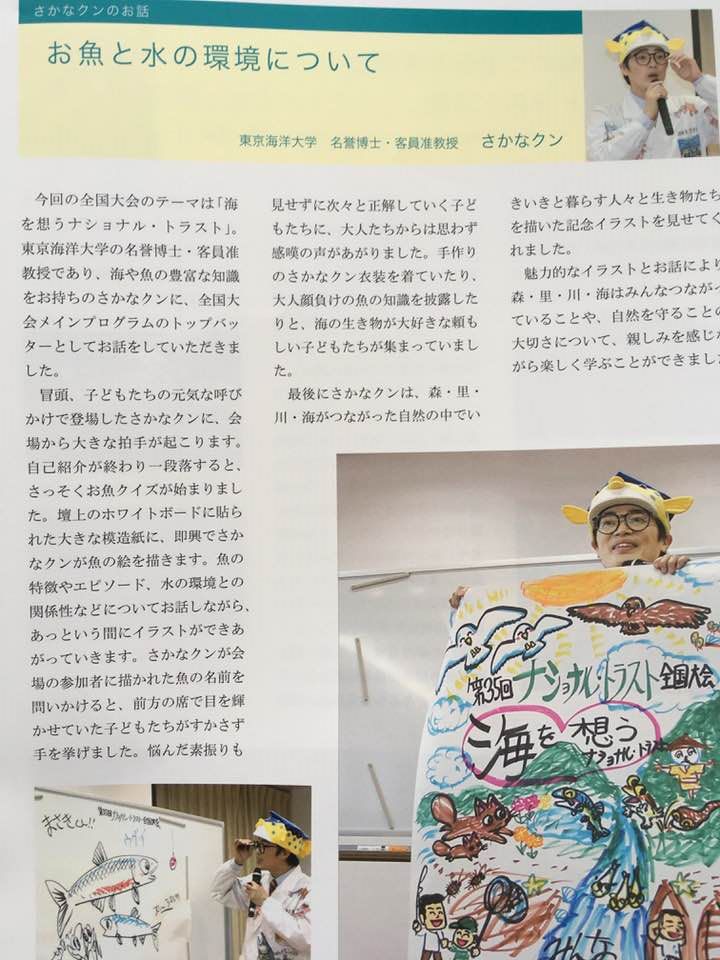 さかなクンのお話
お魚と水の環境について
東京海洋大学 名誉博士・客員准教授 さかなクン
今回の全国大会のテーマは「海
を想うナショナル・トラスト」。
東京海洋大学の名誉博士・客員准
教授であり、海や魚の豊富な知識
をお持ちのさかなクンに、全国大
会メインプログラムのトップバッ
ターとしてお話をしていただきま
した。
冒頭、子どもたちの元気な呼び
かけで登場したさかなクンに、会
場から大きな拍手が起こります。
自己紹介が終わり一段落すると、
さっそくお魚クイズが始まりまし
た。壇上のホワイトボードに貼ら
れた大きな模造紙に、即興でさか
なクンが魚の絵を描きます。魚の
特徴やエピソード、水の環境との
関係性などについてお話しながら、
あっという間にイラストができあ
がっていきます。さかなクンが会
場の参加者に描かれた魚の名前を
問いかけると、前方の席で目を輝
かせていた子どもたちがすかさず
手を挙げました。悩んだ素振りも
見せずに次々と正解していく子ど
もたちに、大人たちからは思わず
感嘆の声があがりました。手作り
のさかなクン衣装を着ていたり、
大人顔負けの魚の知識を披露した
りと、海の生き物が大好きな頼も
しい子どもたちが集まっていまし
た。
最後にさかなクンは、森・里・
川・海がつながった自然の中でい
きいきと暮らす人々と生き物たち
を描いた記念イラストを見せてく
れました。
魅力的なイラストとお話により
森・里・川・海はみんなつながっ
ていることや、自然を守ることの
大切さについて、親しみを感じな
がら楽しく学ぶことができました
第35回 ナショナル・トラスト 全国大会
海を想う
ナショナル・トラスト
みんな
まさきくん!!
ウグイ